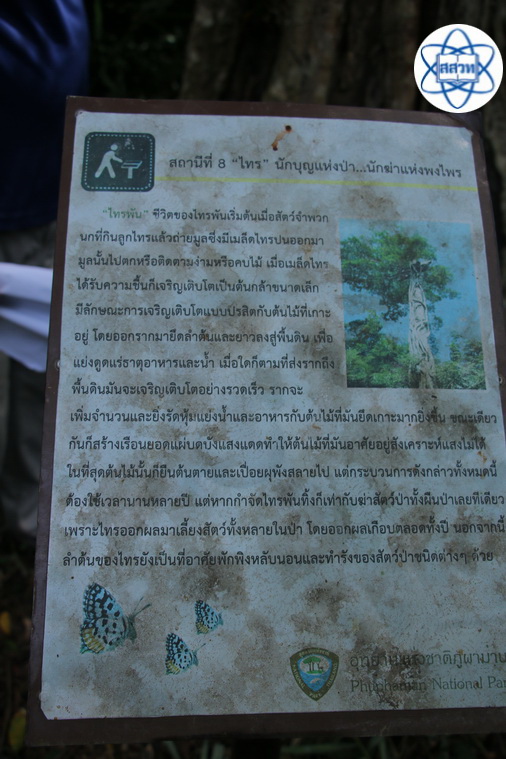 สสวท
สถานีที่ 8 "ไทร" นักบุญแห่งป่า...นักฆ่าแห่งพงไพร
"ไทรพัน" ชีวิตของไทรพันเริ่มต้นเมื่อสัตว์จำพวก
นกที่กินลูกไทรแล้วถ่ายมูลซึ่งมีเมล็ดไทรปนออกมา
มูลนั้นไปตกหรือติดตามง่ามหรือคบไม้ เมื่อเมล็ดไทร
ได้รับความชื้นก็เจริญเติบโตเป็นต้นกล้าขนาดเล็ก
มีลักษณะการเจริญเติบโตแบบปรสิตกับต้นไม้ที่เกาะ
อยู่ โดยออกรากมายึดลำต้นและยาวลงสู่พื้นดิน เพื่อ
แย่งดูดแร่ธาตุอาหารและน้ำ เมื่อใดก็ตามที่ส่งรากถึง
พื้นดินมันจะเจริญเติบโตอย่างรวดเร็ว รากจะ
เพิ่มจำนวนและยิ่งรัดหุ้มแย่งน้ำและอาหารกับต้นไม้ที่มันยึดเกาะมากยิ่งขึ้น ขณะเดียว
กันก็สร้างเรือนยอดแผ่บดบังแสงแดดทำให้ต้นไม้ที่มันอาศัยอยู่สังเคราะห์แสงไม่ได้
ในที่สุดต้นไม้นั้นก็ยืนต้นตายและเปื่อยผุพังสลายไป แต่กระบวนการดังกล่าวทั้งหมดนี้
ต้องใช้เวลานานหลายปี แต่หากกำจัดไทรพันทิ้งก็เท่ากับฆ่าสัตว์ป่าทั้งผืนป่าเลยทีเดียว
เพราะไทรออกผลมาเลี้ยงสัตว์ทั้งหลายในป่า โดยออกผลเกือบตลอดทั้งปี นอกจากนี้
ลำต้นของไทรยังเป็นที่อาศัยพักพิงหลับนอนและทำรังของสัตว์ป่าชนิดต่างๆ ด้วย
อุทยานแห่งชาติภูผาม่าน
Phuphaman National Par